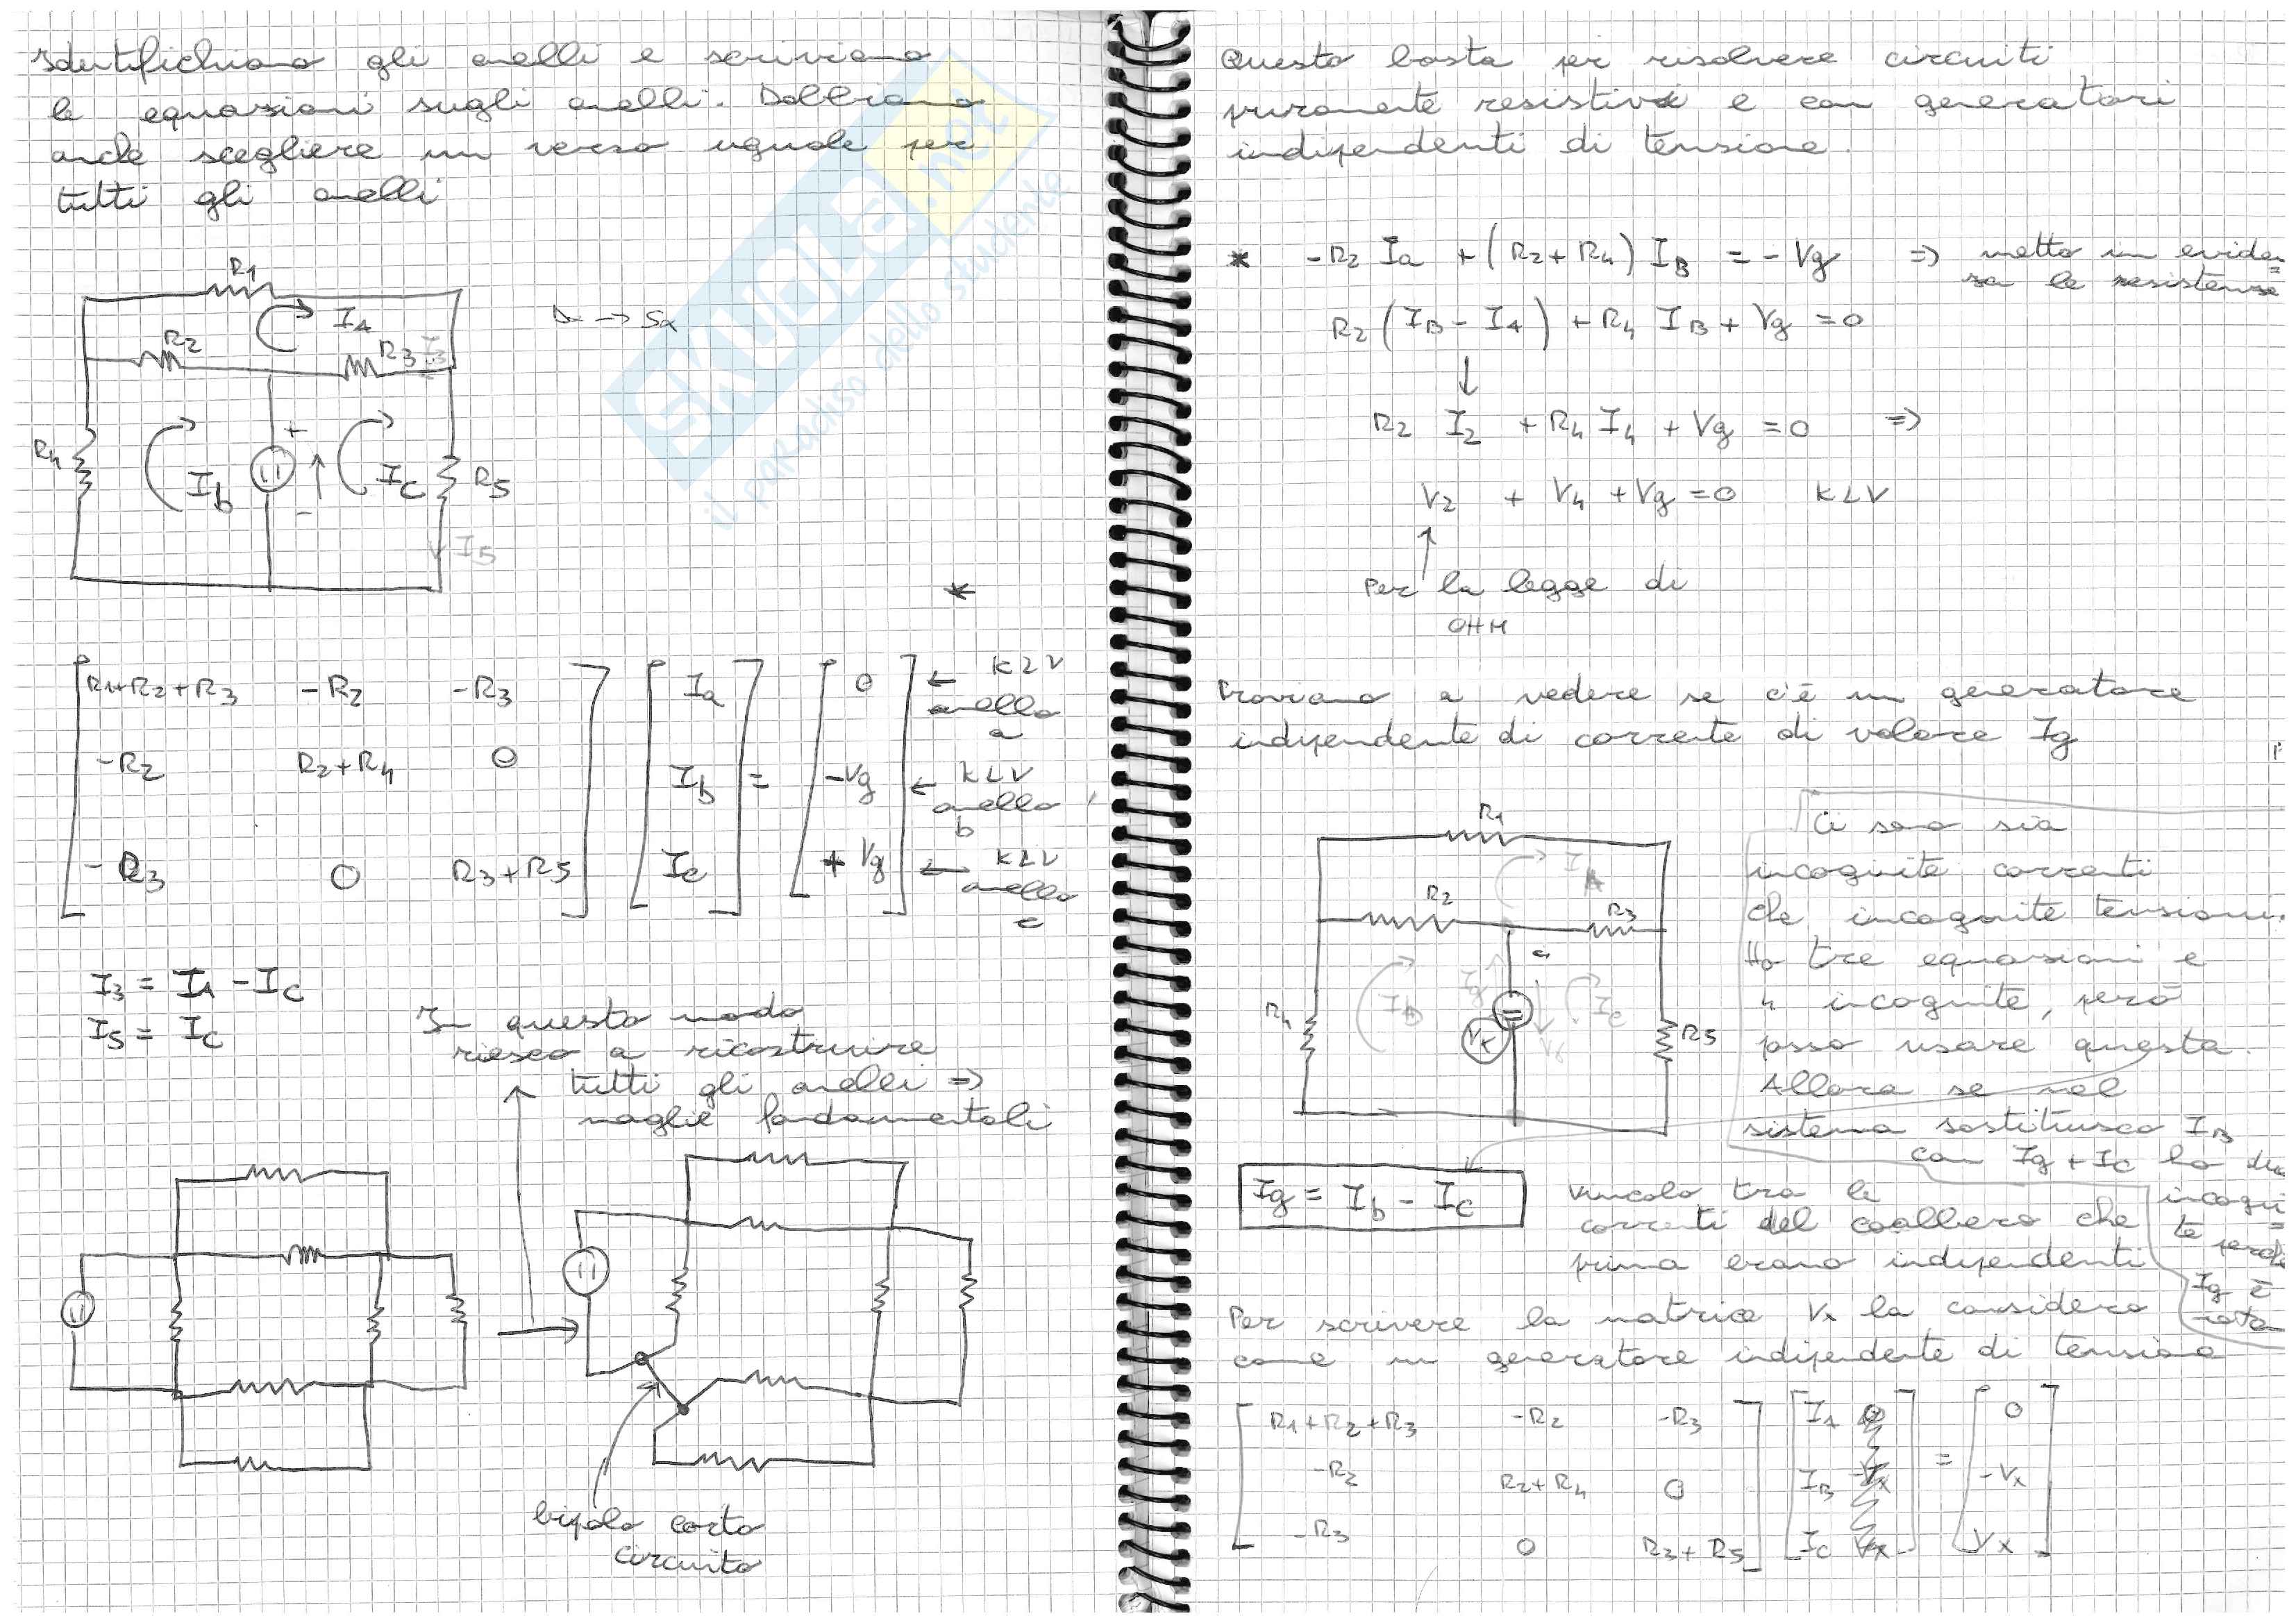 Identifichiamo gli anelli e scriviamo
le equazioni sugli anelli. Dobbiamo
anche scegliere un verso uguale per
tutti gli anelli
R1
IA
R2
R3
I3
R4
Ib
+
-
Ic
R5
I5
*
R1+R2+R3 -R2 -R3 Ia 0 ← KLV anello a
-R2 R2+R4 0 Ib = -Vg ← KLV anello b
-R3 0 R3+R5 Ic +Vg ← KLV anello c
I3 = IA - Ic
I5 = Ic
In questo modo
riesco a ricostruire
tutti gli anelli =>
maglie fondamentali
bipolo corto
circuito
Questo basta per risolvere circuiti
puramente resistivi e con generatori
indipendenti di tensione.
* -R2 Ia + (R2+R4) IB = - Vg => metto in eviden=
za le resistenze
R2 (IB - IA) + R4 IB + Vg = 0
↓
R2 I2 + R4 I4 + Vg = 0 =>
V2 + V4 + Vg = 0 KLV
↑
Per la legge di
OHM
Proviamo a vedere se c'è un generatore
indipendente di corrente di valore Ig
R1
IA
R2
R3
R4
IB
Ig
Vx
Ic
R5
Ci sono sia
incognite correnti
che incognite tensioni.
Ho tre equazioni e
4 incognite, però
posso usare questa.
Allora se nel
sistema sostituisco IB
con Ig + Ic ho due
incogni=
te perché
Ig è
nota
Ig = Ib - Ic
Vincolo tra le
correnti del coalbero che
prima erano indipendenti
Per scrivere la matrice Vx la considero
come un generatore indipendente di tensione
R1+R2+R3 -R2 -R3 IA 0
-R2 R2+R4 0 IB = -Vx
-R3 0 R3+R5 Ic Vx
SKUOLA.net
il paradiso dello studente